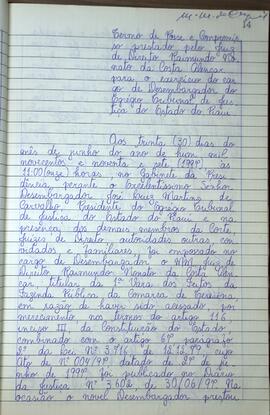 14
Termo de Posse e Compromis
so prestado pelo Juiz
de Direito Raimundo No
nato da Costa Alencar
para o exercício do car
go de Desembargador do
Egrégio Tribunal de Jus
tiça do Estado do Piauí
Aos trinta (30) dias do
mês de junho do ano de hum mil
novecentos e noventa e sete (1997), às
11:00 (onze) horas, no Gabinete da Presi
dência, perante o Excelentíssimo Senhor
Desembargador José Luiz Martins de
Carvalho, Presidente do Egrégio Tribunal
de Justiça do Estado do Piauí e na
presença dos demais membros da Corte,
Juízes de Direito, autoridades outras, con
vidados e familiares, foi empossado no
cargo de Desembargador o MM. Juiz de
Direito Raimundo Nonato da Costa Alen
car, titular da 1ª Vara dos Feitos da
Fazenda Pública da Comarca de Teresina
em razão de haver sido acessado por
merecimento nos termos do artigo 116
inciso III, da Constituição do Estado,
combinado com o artigo 61 parágrafo
3º da Lei Nº 3.716, de 12.12.79 cujo
Ato de Nº 004/97, datado de de ju
nho de 1997 foi publicado no Diário
da Justiça Nº 3.602 de 30/06/97. Na
ocasião o novel Desembargador prestou